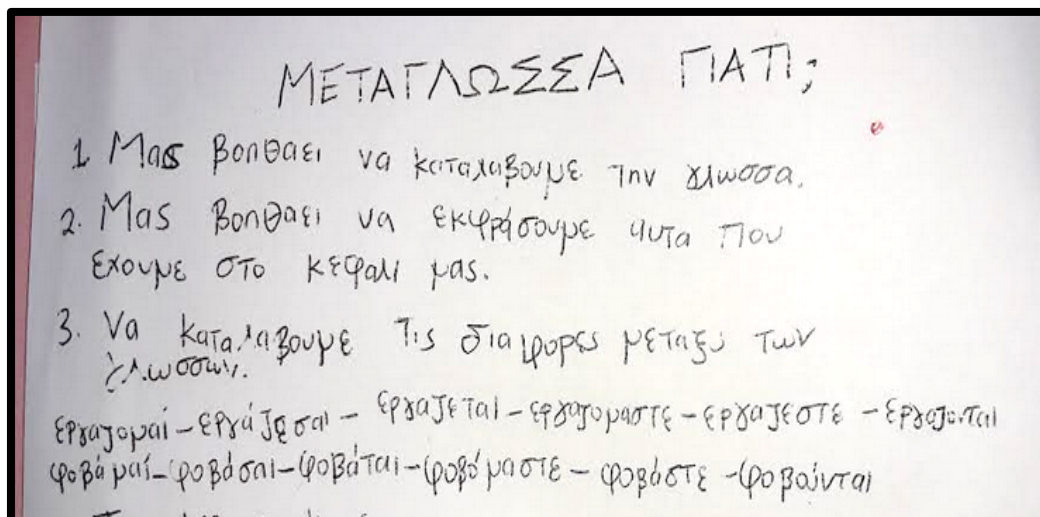 ΜΕΤΑΓΛΩΣΣΑ ΓΙΑΤΙ;
1. Μας βοηθαει να καταλαβουμε την γλωσσα.
2. Μας βοηθαει να εκφράσουμε αυτα που
εχουμε στο κεφαλι μας.
3. Να καταλαβουμε τις διαφορες μεταξύ των
γλωσσων.
εργαζομαι - εργάζεσαι - εργαζεται - εργαζομαστε - εργαζεστε - εργαζονται
φοβάμαι - φοβάσαι - φοβάται - φοβόμαστε - φοβάστε - φοβούνται